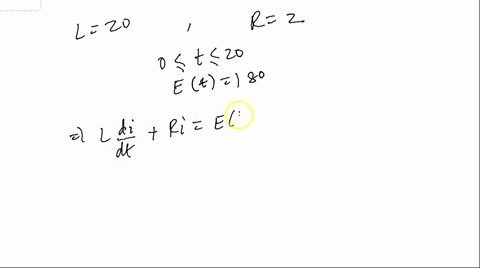 L = 20 , R = 2
0 ≤ t ≤ 20
E (t) = 180
⇒ L di/dt + Ri = E(